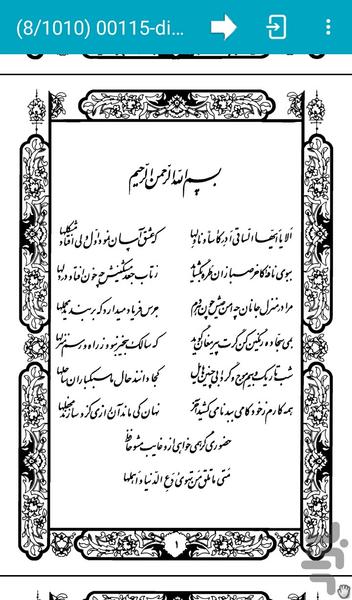 (8/1010) 00115-di...
بسم الله الرحمن الرحیم
الا یا ایها الساقی ادر کاسا و ناولها که عشق آسان نمود اول ولی افتاد مشکلها
ببوی نافه کاخر صبا زان طره بگشاید ز تاب جعد مشکینش چه خون افتاد در دلها
مرا در منزل جانان چه امن عیش چون هردم جرس فریاد میدارد که بربندید محملها
بمی سجاده رنگین کن گرت پیر مغان گوید که سالک بیخبر نبود ز راه و رسم منزلها
شب تاریک و بیم موج و گردابی چنین هایل کجا دانند حال ما سبکباران ساحلها
همه کارم ز خود کامی ببدنامی کشید آخر نهان کی ماند آن رازی کزو سازند محفلها
حضوری گر همی خواهی ازو غایب مشو حافظ
متی ما تلق من تهوی دع الدنیا و اهملها
۱